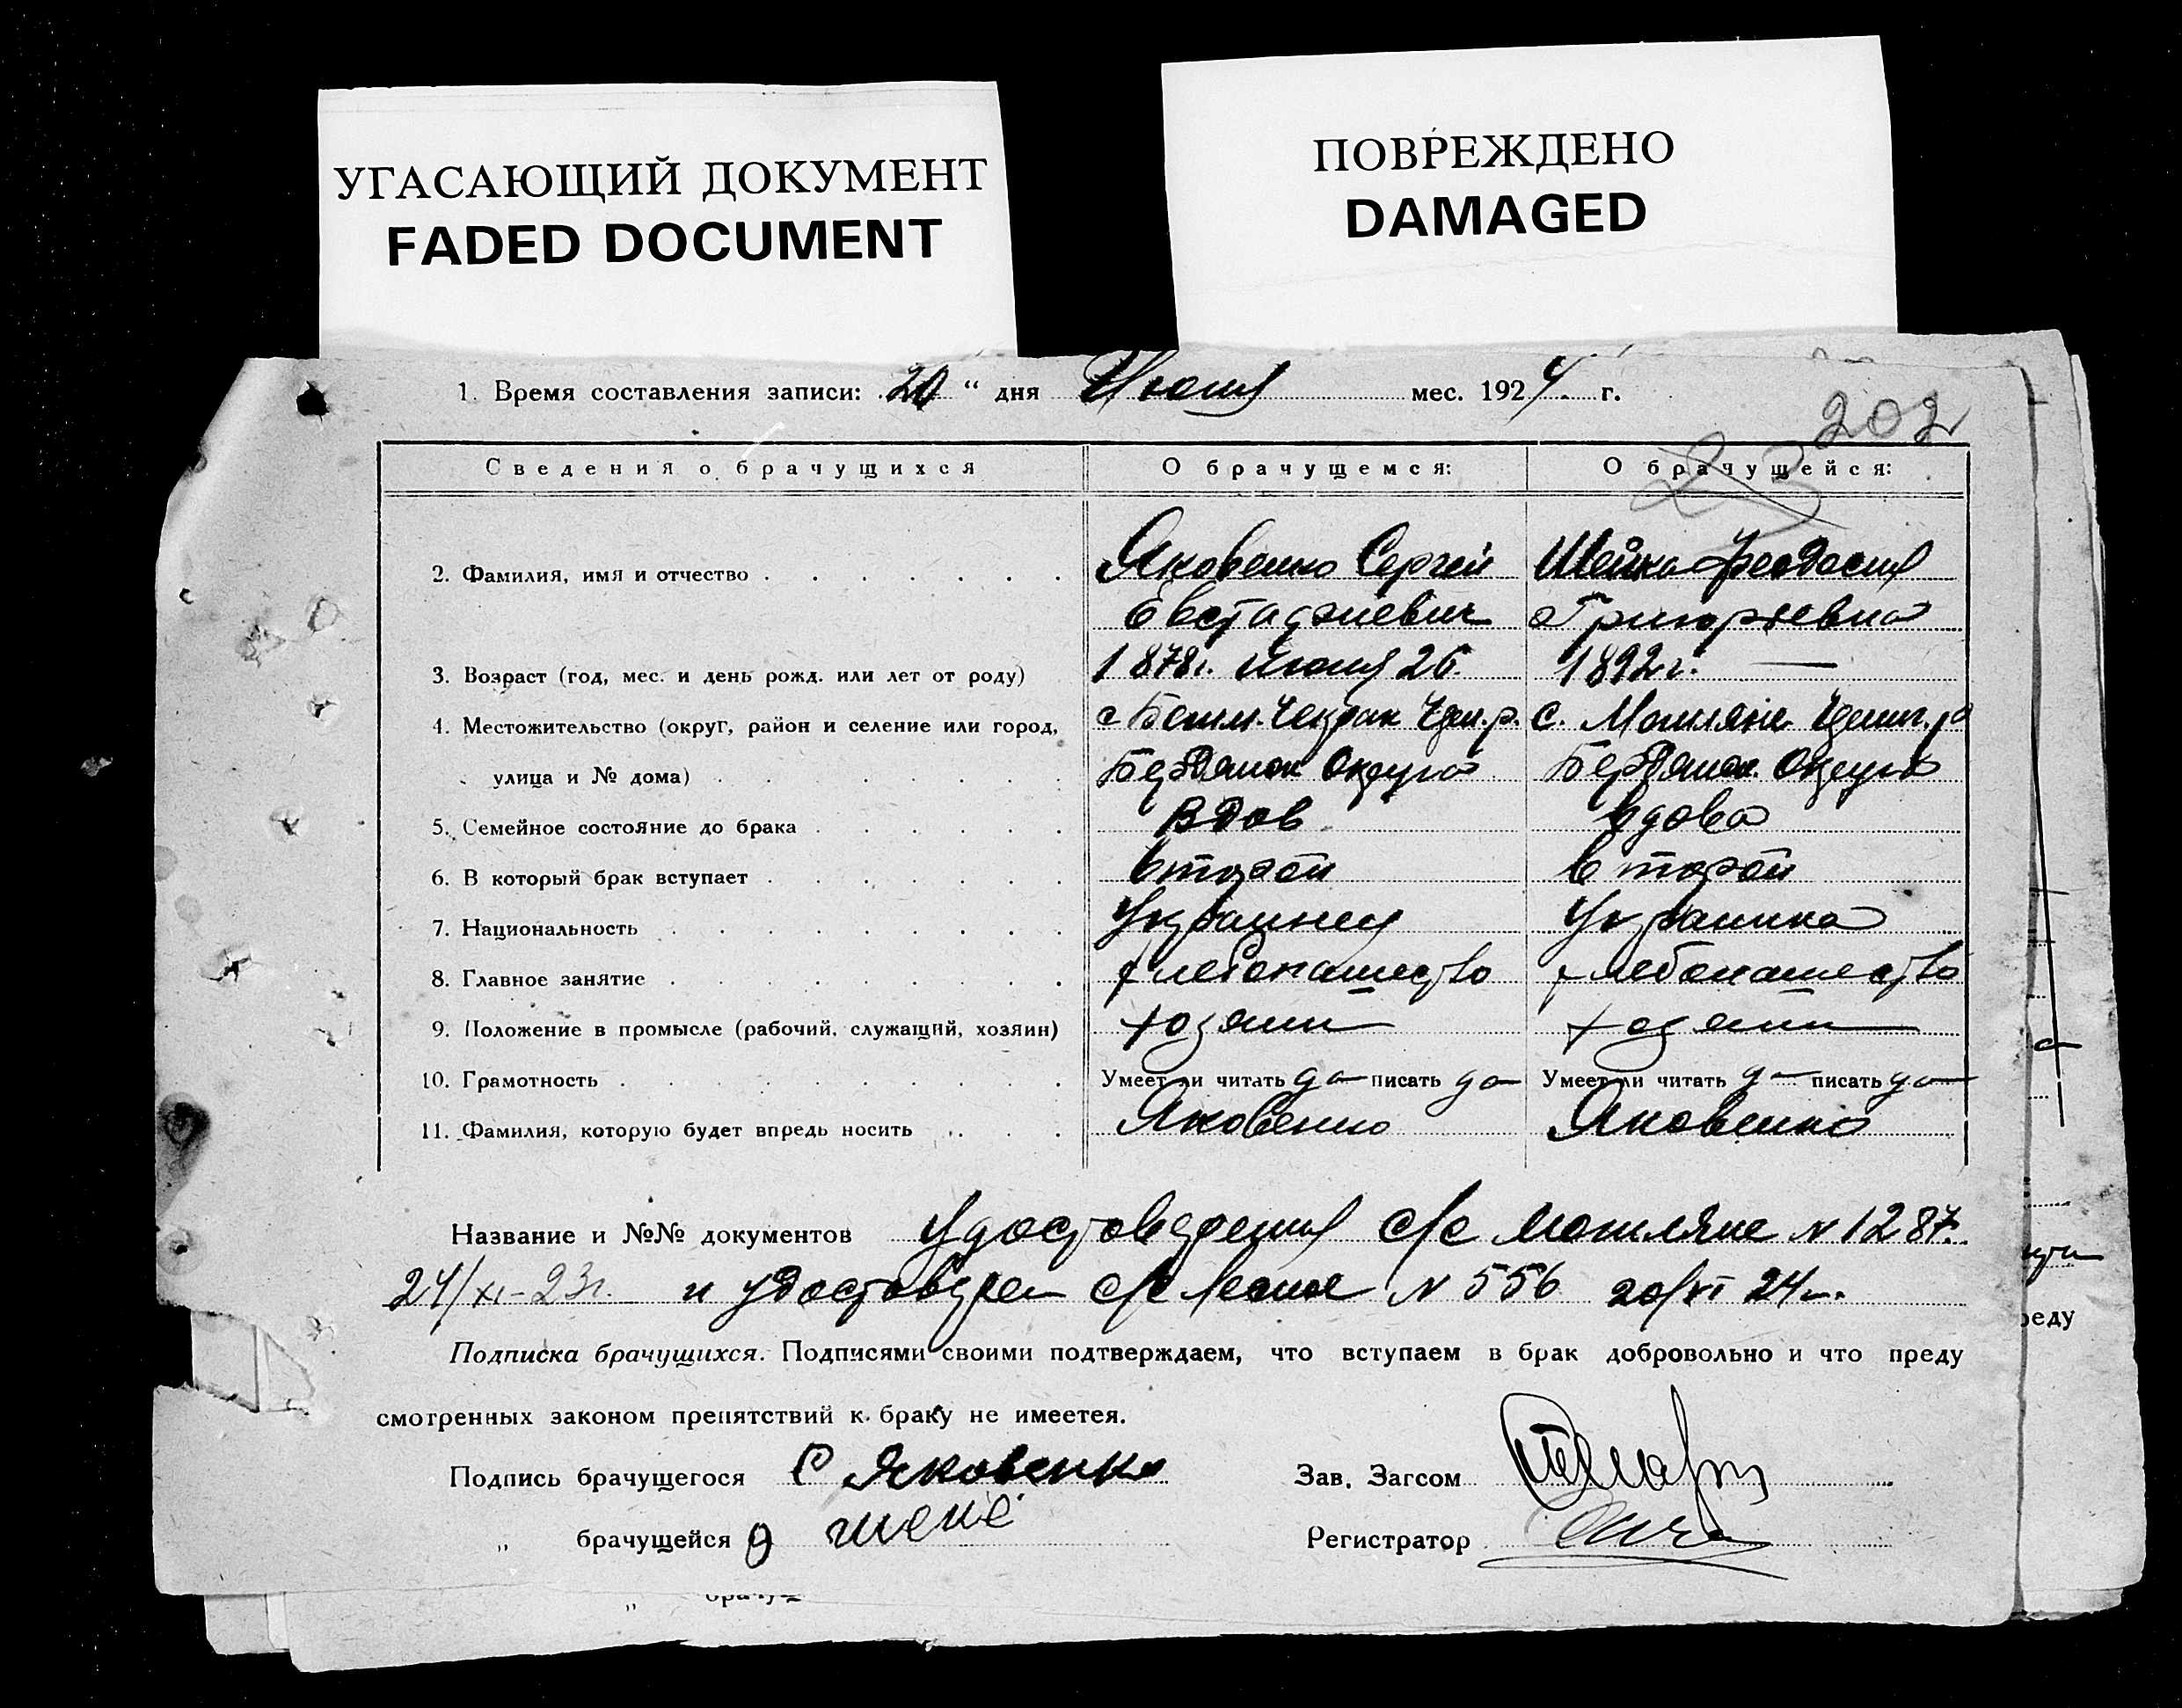 УГАСАЮЩИЙ ДОКУМЕНТ
FADED DOCUMENT
ПОВРЕЖДЕНО
DAMAGED
1. Время составления записи: 20 “ дня Июня мес. 1924 г.
202
23
Сведения о брачущихся О брачущемся: О брачущейся:
2. Фамилия, имя и отчество Яковенко Сергей Шейко Феодосия
Евстафиевич Григорьевна
3. Возраст (год, мес. и день рожд. или лет от роду) 1878г. Июня 26. 1892г. —
4. Местожительство (округ, район и селение или город, с Чекрак с.
улица и № дома) Бердянск Округа Бердянск. Округа
5. Семейное состояние до брака Вдов вдова
6. В который брак вступает второй второй
7. Национальность Украинец Украинка
8. Главное занятие хлебопашество хлебопашество
9. Положение в промысле (рабочий, служащий, хозяин) хозяин хозяин
10. Грамотность Умеет ли читать да писать да Умеет ли читать да писать да
11. Фамилия, которую будет впредь носить Яковенко Яковенко
Название и №№ документов удостоверения с/с N 1287.
24/XI-23г. и удостоверен с/с N 556 20/VI 24г.
Подписка брачущихся. Подписями своими подтверждаем, что вступаем в брак добровольно и что преду
смотренных законом препятствий к браку не имеетея.
Подпись брачущегося С Яковенко Зав. Загсом
„ брачущейся Регистратор
„ брачу
реду